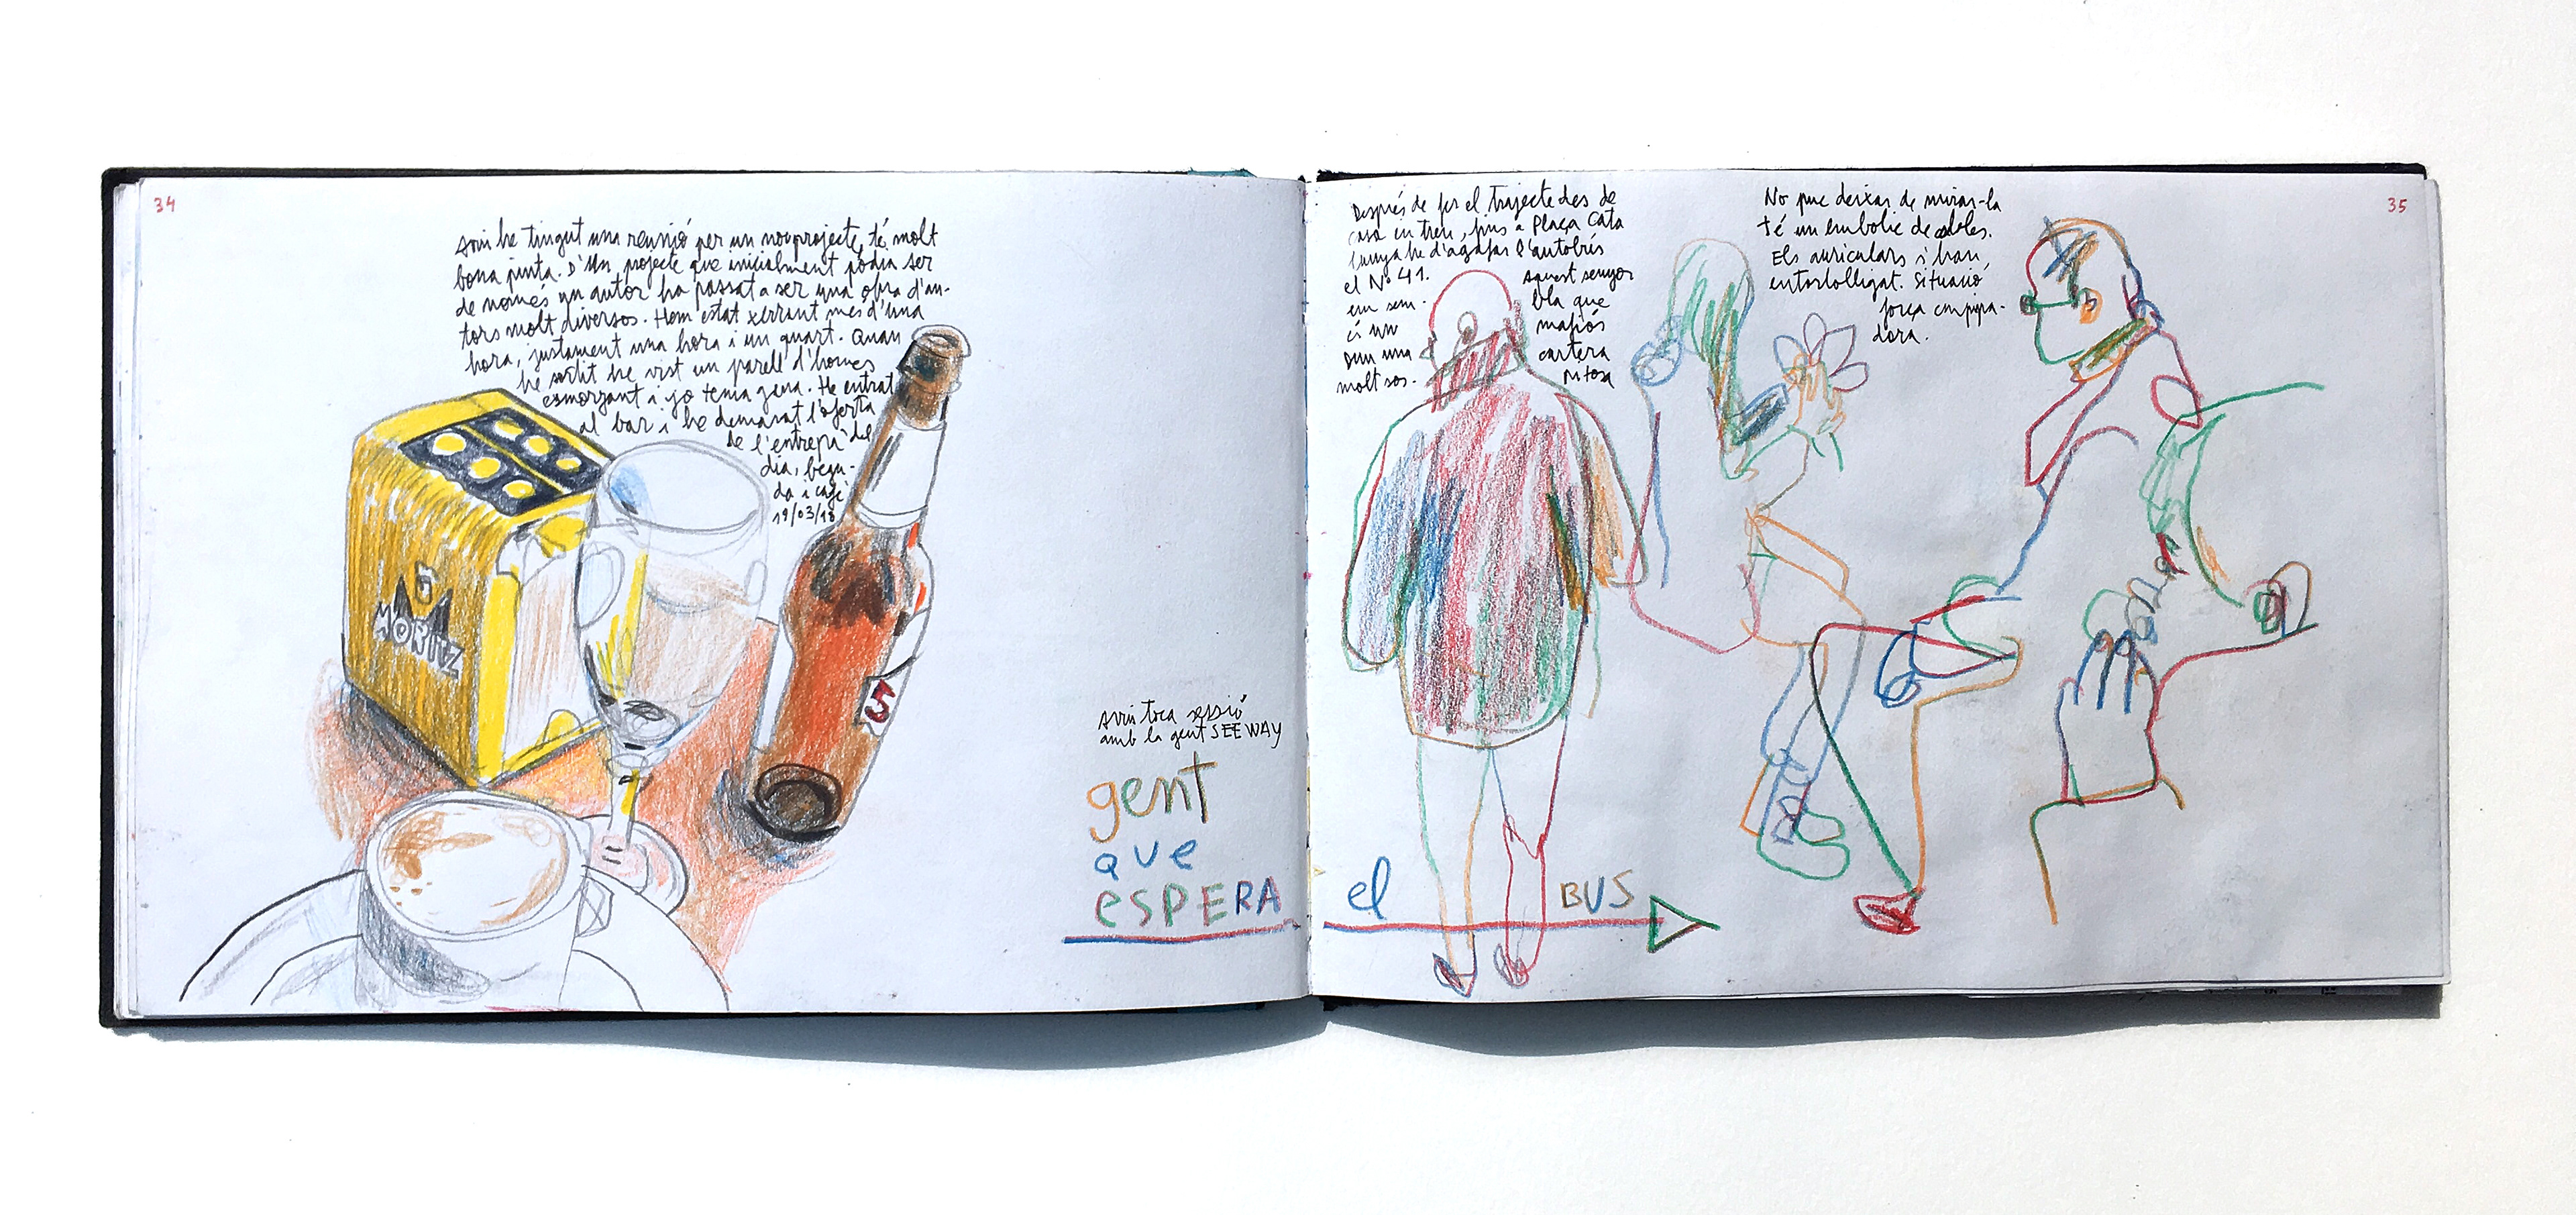 34
Avui he tingut una reunió per un nou projecte, té molt
bona pinta. D'un projecte que inicialment podia ser
de només un autor ha passat a ser una obra d'au-
tors molt diversos. Hem estat xerrant més d'una
hora, justament una hora i un quart. Quan
he sortit he vist un parell d'homes
esmorzant i jo tenia gana. He entrat
al bar i he demanat l'oferta
de l'entrepà del
dia, begu-
da i cafè
19/03/18
MORITZ
5
Avui toca sessió
amb la gent SEEWAY
gent
que
ESPERA
Després de fer el trajecte des de
casa en tren, fins a Plaça Cata
lunya he d'agafar l'autobús
el Nº 41.
Aquest senyor
em sem-
bla que
és un
mafiós
amb una
cartera
molt sos-
pitosa
el BUS
No puc deixar de mirar-la
té un embolic de cables.
Els auriculars s'han
entortolligat. Situació
força empipa-
dora.
35